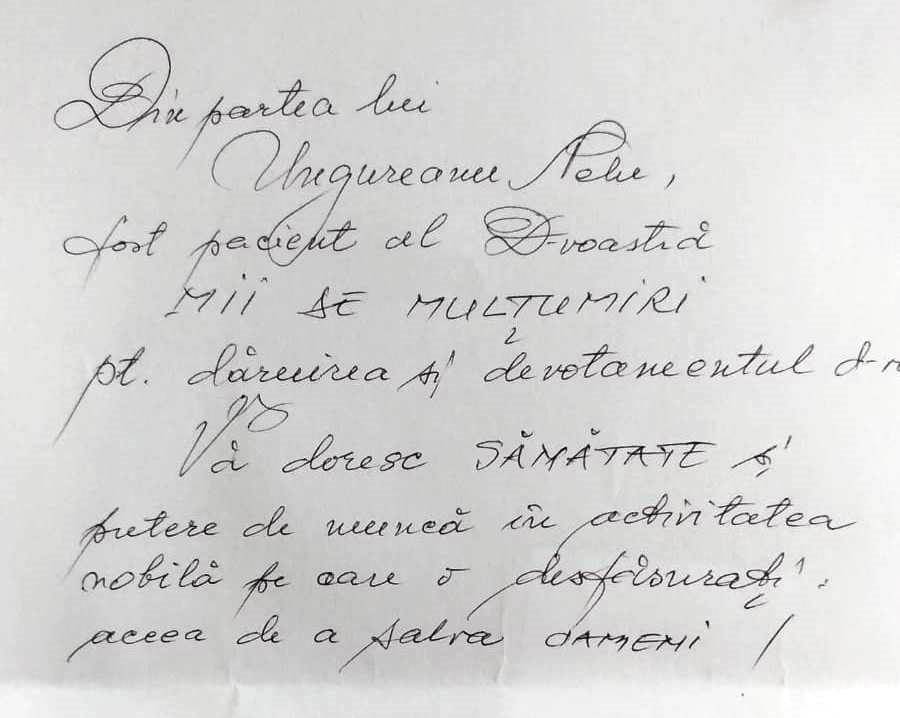 Din partea lui
Ungureanu Nelu,
fost pacient al D-voastră
MII DE MULȚUMIRI
pt. dăruirea și devotamentul d-v
Vă doresc SĂNĂTATE și
putere de muncă în activitatea
nobilă pe care o desfășurați:
aceea de a salva OAMENI!